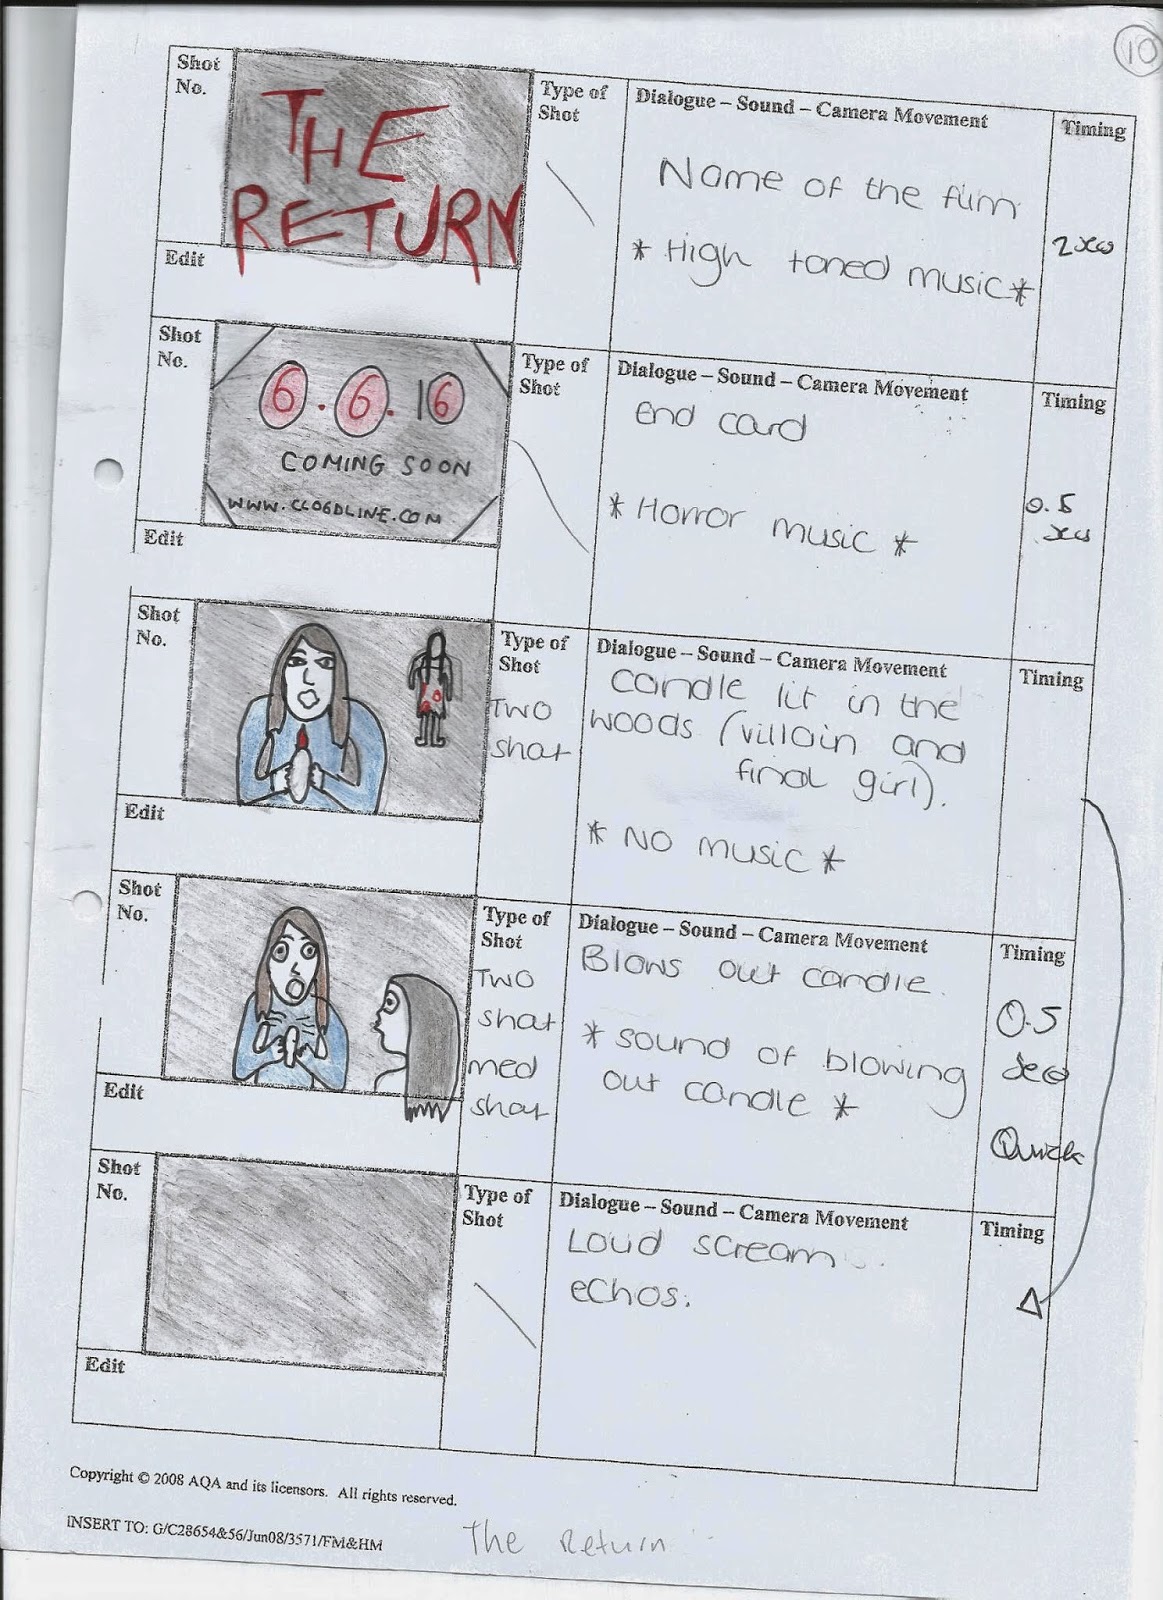 10
Shot
No.
THE
RETURN
Type of
Shot
Dialogue – Sound – Camera Movement
Name of the film
* High toned music *
Timing
2
Edit
Shot
No.
6.6.16
COMING SOON
WWW.CLOGDLINE.COM
Type of
Shot
Dialogue – Sound – Camera Movement
End card
* Horror music *
Timing
0.5
Edit
Shot
No.
Type of
Shot
Two
shot
Dialogue – Sound – Camera Movement
Candle lit in the
woods (villain and
final girl).
* No music *
Timing
Edit
Shot
No.
Type of
Shot
Two
shot
med
shot
Dialogue – Sound – Camera Movement
Blows out candle.
* sound of blowing
out candle *
Timing
0.5
sec
Quick
Edit
Shot
No.
Type of
Shot
Dialogue – Sound – Camera Movement
Loud scream
echos.
Timing
Edit
Copyright © 2008 AQA and its licensors. All rights reserved.
INSERT TO: G/C28654&56/Jun08/3571/FM&HM
The Return